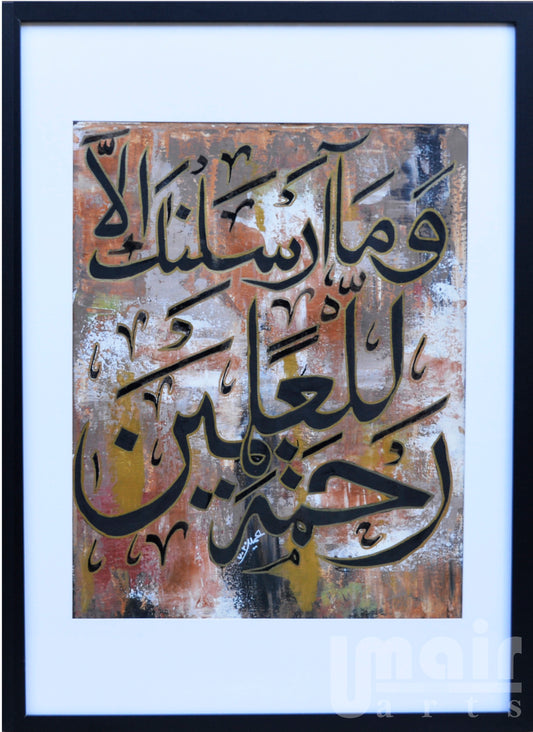 وَمَآ أَرْسَلنٰكَ إلَّا
رَحْمَةً
لِّلعٰلَمِينَ
Umair
arts